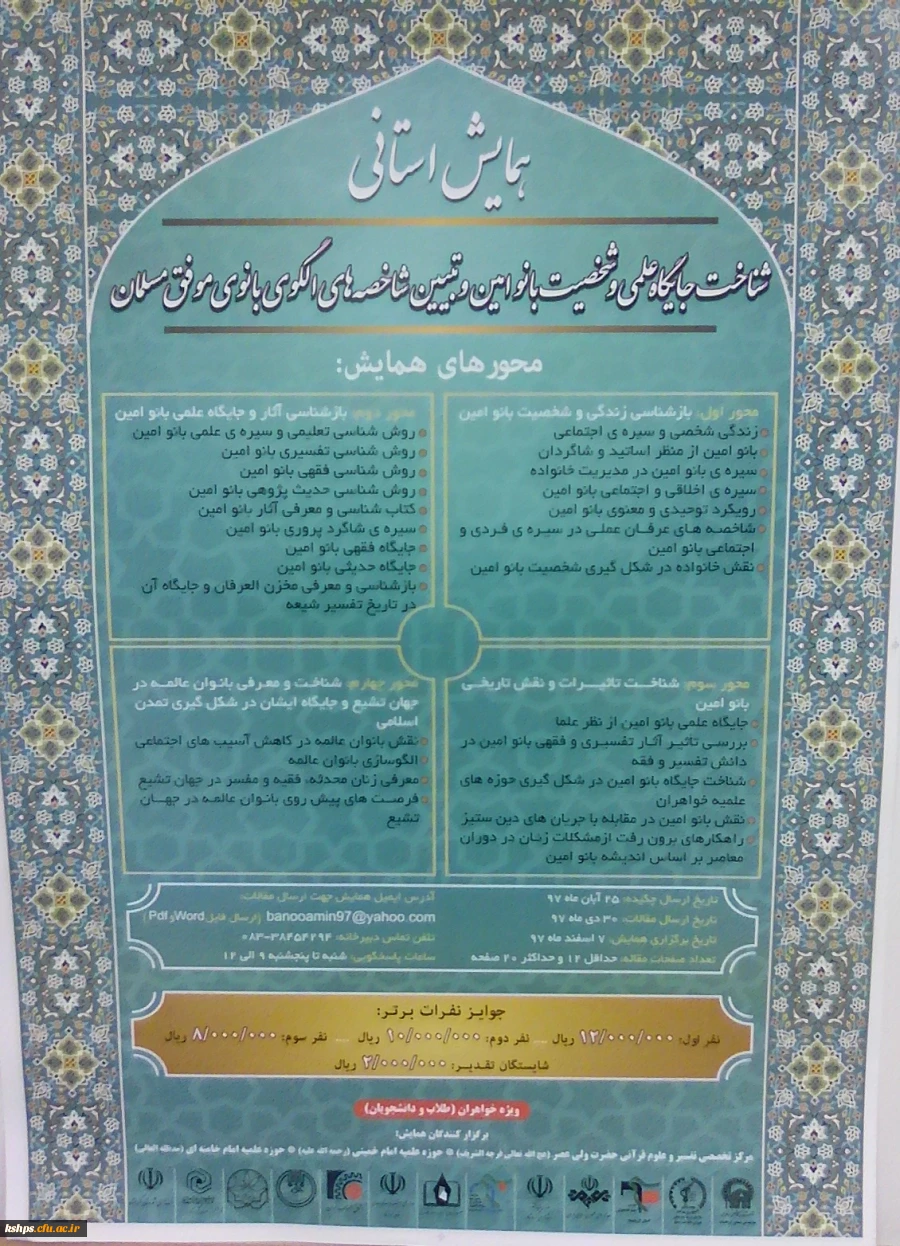 همایش استانی
شناخت جایگاه علمی و شخصیت بانو امین و تبیین شاخصه های الگوی بانوی موفق مسلمان
محورهای همایش:
محور اول: بازشناسی زندگی و شخصیت بانو امین
زندگی شخصی و سیره ی اجتماعی
بانو امین از منظر اساتید و شاگردان
سیره ی بانو امین در مدیریت خانواده
سیره ی اخلاقی و اجتماعی بانو امین
رویکرد توحیدی و معنوی بانو امین
شاخصه های عرفان عملی در سیره ی فردی و
اجتماعی بانو امین
نقش خانواده در شکل گیری شخصیت بانو امین
محور دوم: بازشناسی آثار و جایگاه علمی بانو امین
روش شناسی تعلیمی و سیره ی علمی بانو امین
روش شناسی تفسیری بانو امین
روش شناسی فقهی بانو امین
روش شناسی حدیث پژوهی بانو امین
کتاب شناسی و معرفی آثار بانو امین
سیره ی شاگرد پروری بانو امین
جایگاه فقهی بانو امین
جایگاه حدیثی بانو امین
بازشناسی و معرفی مخزن العرفان و جایگاه آن
در تاریخ تفسیر شیعه
محور سوم: شناخت تاثیرات و نقش تاریخی
بانو امین
جایگاه علمی بانو امین از نظر علما
بررسی تاثیر آثار تفسیری و فقهی بانو امین در
دانش تفسیر و فقه
شناخت جایگاه بانو امین در شکل گیری حوزه های
علمیه خواهران
نقش بانو امین در مقابله با جریان های دین ستیز
راهکارهای برون رفت ازمشکلات زنان در دوران
معاصر بر اساس اندیشه بانو امین
محور چهارم: شناخت و معرفی بانوان عالمه در
جهان تشیع و جایگاه ایشان در شکل گیری تمدن
اسلامی
نقش بانوان عالمه در کاهش آسیب های اجتماعی
الگوسازی بانوان عالمه
معرفی زنان محدثه، فقیه و مفسر در جهان تشیع
فرصت های پیش روی بانوان عالمه در جهان
تشیع
تاریخ ارسال چکیده: ۲۵ آبان ماه ۹۷
تاریخ ارسال مقالات: ۳۰ دی ماه ۹۷
تاریخ برگزاری همایش: ۷ اسفند ماه ۹۷
تعداد صفحات مقاله: حداقل ۱۲ و حداکثر ۲۰ صفحه
آدرس ایمیل همایش جهت ارسال مقالات:
banooamin97@yahoo.com (ارسال فایل Word و Pdf)
تلفن تماس دبیرخانه: ۰۸۳-۳۸۴۵۴۲۹۴
ساعات پاسخگویی: شنبه تا پنجشنبه ۹ الی ۱۲
جوایز نفرات برتر:
نفر اول: ۱۲/۰۰۰/۰۰۰ ریال نفر دوم: ۱۰/۰۰۰/۰۰۰ ریال نفر سوم: ۸/۰۰۰/۰۰۰ ریال
شایستگان تقدیر: ۲/۰۰۰/۰۰۰ ریال
ویژه خواهران (طلاب و دانشجویان)
برگزار کنندگان همایش:
مرکز تخصصی تفسیر و علوم قرآنی حضرت ولی عصر (عج الله تعالی فرجه الشریف) حوزه علمیه امام خمینی (رحمه الله علیه) حوزه علمیه امام خامنه ای (مدظله العالی)
kshps.cfu.ac.ir